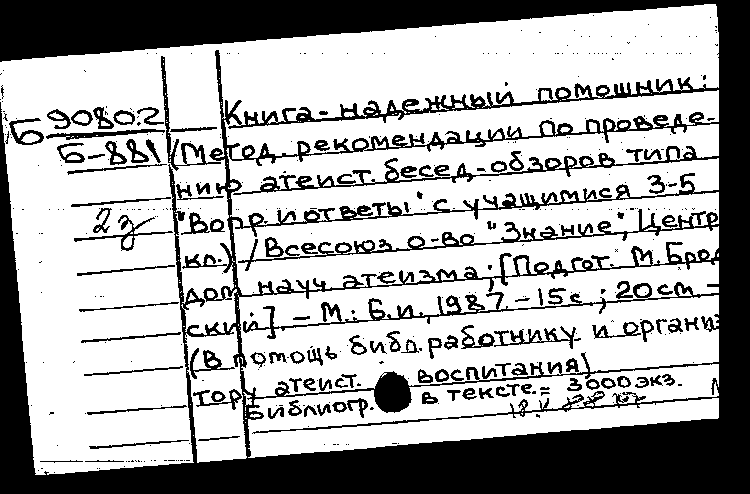 Б 90802
Б-881
2 з
Книга-надежный помошник:
(Метод. рекомендации по проведе-
нию атеист. бесед-обзоров типа
"Вопр. и ответы" с учащимися 3-5
кл.) / Всесоюз. о-во "Знание", Центр.
дом науч. атеизма; [Подгот. М. Брод
ский]. - М.: Б.и., 1987. - 15с.; 20см. -
(В помощь библ. работнику и органи
тору атеист. воспитания)
Библиогр. в тексте. = 3000 экз.